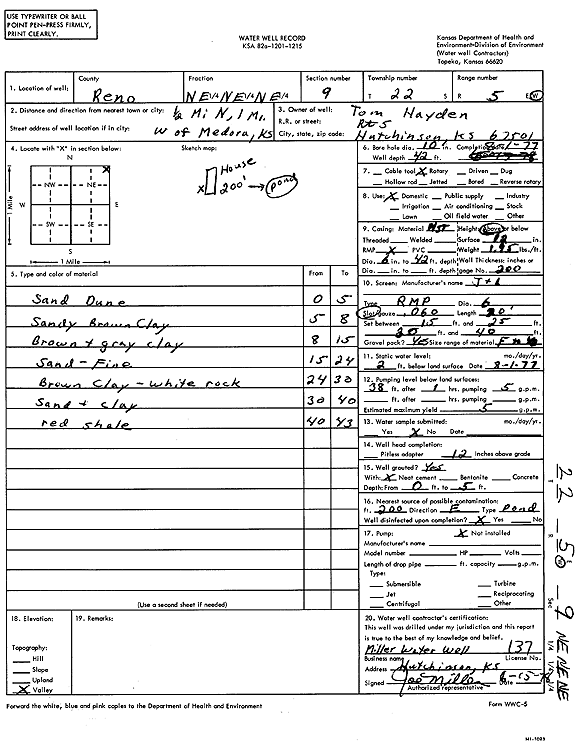 USE TYPEWRITER OR BALL
POINT PEN-PRESS FIRMLY,
PRINT CLEARLY.
WATER WELL RECORD
KSA 82a-1201-1215
Kansas Department of Health and
Environment-Division of Environment
(Water well Contractors)
Topeka, Kansas 66620
1. Location of well: County Reno Fraction NE 1/4 NE 1/4 NE 1/4 Section number 9 Township number T 22 S Range number R 5 E/W
2. Distance and direction from nearest town or city: 1/2 Mi N, 1 Mi.
Street address of well location if in city: W of Medora, KS
3. Owner of well: Tom Hayden
R.R. or street: Rt 5
City, state, zip code: Hutchinson, KS 67501
4. Locate with "X" in section below:
N
NW NE
W E
SW SE
S
1 Mile
1 Mile
X
Sketch map:
House
X 200' → Pond
6. Bore hole dia. 10 in. Completion 8-1-77
Well depth 42 ft.
7. Cable tool X Rotary Driven Dug
Hollow rod Jetted Bored Reverse rotary
8. Use: X Domestic Public supply Industry
Irrigation Air conditioning Stock
Lawn Oil field water Other
9. Casing: Material Height: Above or below
Threaded Welded Surface 12 in.
RMP X PVC Weight lbs./ft.
Dia. 6 in. to 42 ft. depth Wall Thickness: inches or
Dia. in. to ft. depth gage No. 200
5. Type and color of material From To
Sand Dune 0 5
Sandy Brown Clay 5 8
Brown + gray clay 8 15
Sand - Fine 15 24
Brown Clay - white rock 24 30
Sand + clay 30 40
red shale 40 43
(Use a second sheet if needed)
10. Screen: Manufacturer's name
Type RMP Dia. 6
Slot/gauze .060 Length 20'
Set between 15 ft. and 25 ft.
30 ft. and 40 ft.
Gravel pack? Yes Size range of material
11. Static water level: mo./day/yr.
2 ft. below land surface Date 8-1-77
12. Pumping level below land surfaces:
38 ft. after 1 hrs. pumping 5 g.p.m.
ft. after hrs. pumping g.p.m.
Estimated maximum yield 5 g.p.m.
13. Water sample submitted: mo./day/yr.
Yes X No Date
14. Well head completion:
Pitless adapter 12 Inches above grade
15. Well grouted? Yes
With: X Neat cement Bentonite Concrete
Depth: From 0 ft. to 5 ft.
16. Nearest source of possible contamination:
ft. 200 Direction E Type Pond
Well disinfected upon completion? X Yes No
17. Pump: X Not installed
Manufacturer's name
Model number HP Volts
Length of drop pipe ft. capacity g.p.m.
Type:
Submersible Turbine
Jet Reciprocating
Centrifugal Other
18. Elevation:
Topography:
Hill
Slope
Upland
X Valley
19. Remarks:
20. Water well contractor's certification:
This well was drilled under my jurisdiction and this report
is true to the best of my knowledge and belief.
Miller Water Well 137
Business name License No.
Address Hutchinson, KS
Signed Joe Miller Date
Authorized representative
Forward the white, blue and pink copies to the Department of Health and Environment
Form WWC-5
T 22 R 5 E/W Sec 9 NE NE NE
1/4 1/4 1/4